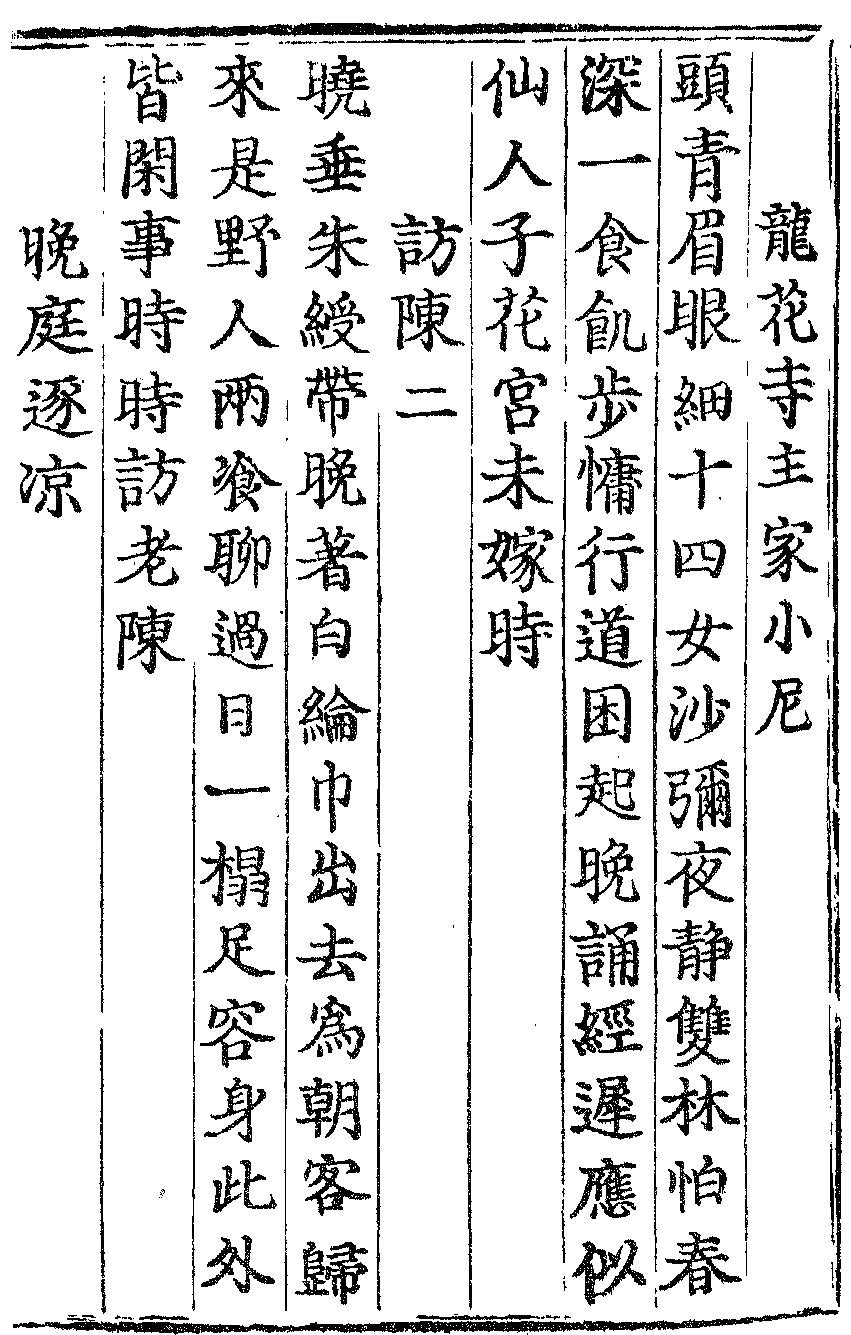 龍花寺主家小尼
頭青眉眼細十四女沙彌夜静雙林怕春
深一食飢步慵行道困起晚誦經遲應似
仙人子花宮未嫁時
訪陳二
曉垂朱綬帶晚著白綸巾出去為朝客歸
來是野人兩飡聊過日一榻足容身此外
皆閑事時時訪老陳
晚庭逐凉